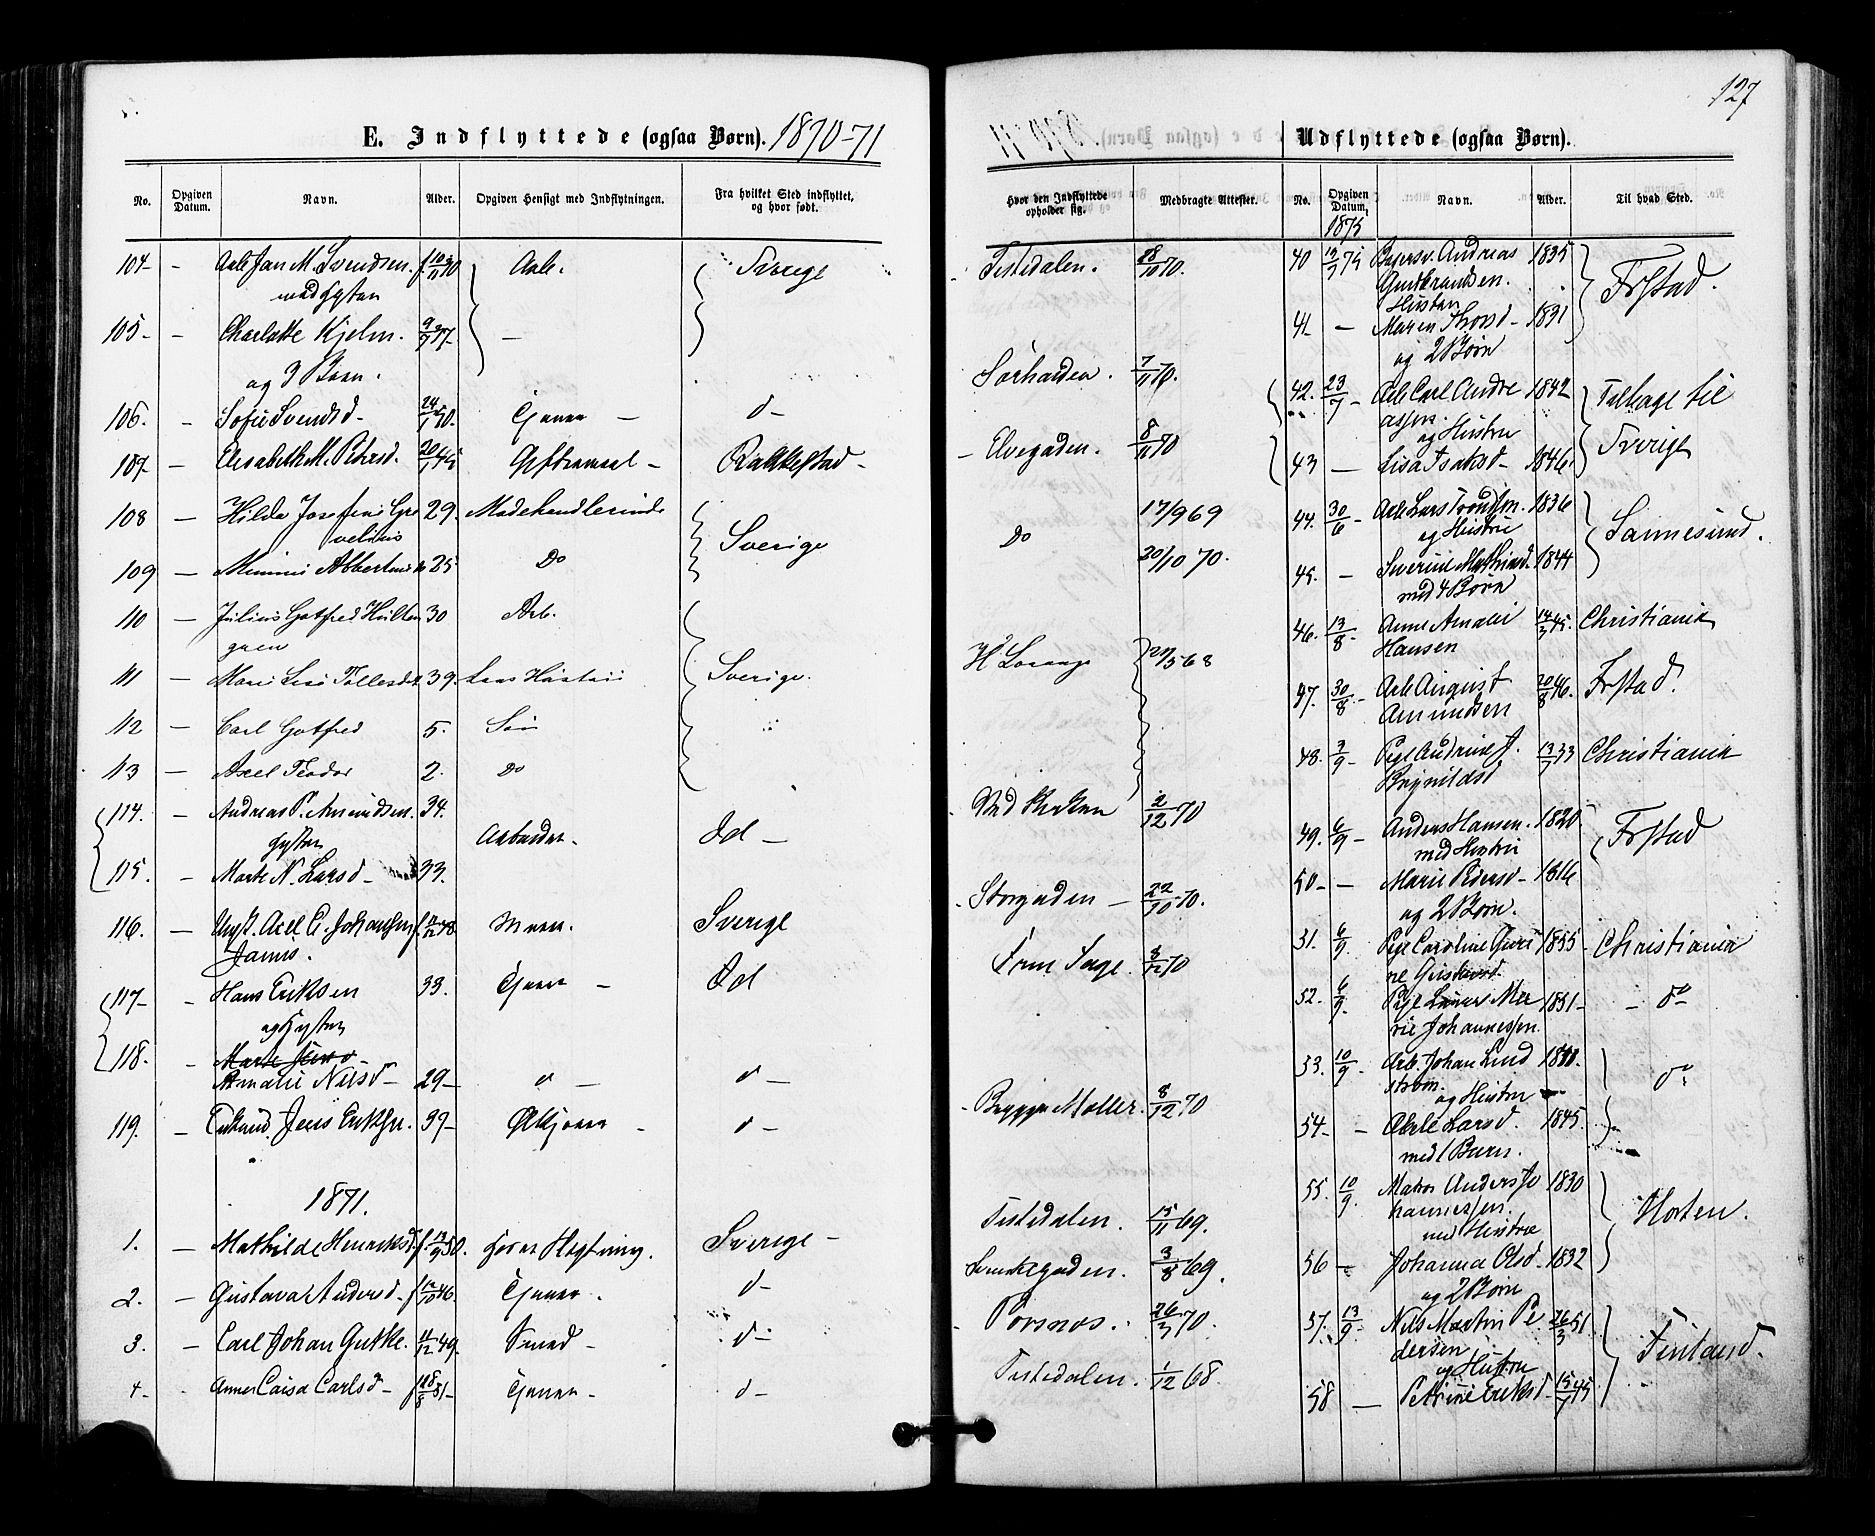 127
E. Indflyttede (ogsaa Børn). 1870-71
No. Opgiven Datum. Navn. Alder. Opgiven Hensigt med Indflytningen. Fra hvilket Sted indflyttet, og hvor født.
104- - Arb Jan M. Svendsen. f 10/11 30 Arb. Sverige
med
105- - Charlotte Kjelm. -
og 3 Børn.
106. - Sofie Svendsd- 24/1 50. Tjener - d-
107- - Elisabeth M. Petersd. 20/1 45 Giftermaal - Rakkestad-
108 - Hilda Josefine Gre 29. Modehandlerinde
velius Sverige
109 - Mimmi Abbertine 25 Do
110 - Julius Gotfred Hulten 30 Arb.
gren
111 - Marie Lise Tollesdt 39. Hustru Sverige.
112 - Carl Gotfred 5. Søn
113 - Axel Teodor 2. Do
114. - Andreas P. Amundsen. 34.
Arbeider. Id -
115. - Marte N. Larsd- 33.
116. - Ungk. Axel C. Johansen f. 48. Sverige
117- - Hans Eriksen 33. Tjener - Id
118. - Marte
Amalie Nilsd- 29- d - d -
119. - Enkemd Jens Eriksen. 39- - d -
1871.
1. - Mathilde Henriksd. f. 13/9 50. Sverige -
2. - Gustava Andersd- f. 12/10 46. Tjener. d-
3. - Carl Johan Gutke. 11/12 49. Smed - d-
4- - Anna Caisa Carlsd- f 18/8 51- Tjener - d-
Hvor den Indflyttede opholder sig. Medbragte Attester.
Tistedalen. 28/10 70.
Sørhalden. 7/11 70.
- Elvegaden. 8/11 70
Do 17/9 69
20/10 70.
5 68
Ved Kirken 2/12 70
- Storgaden - 22/10 70.
8/12 70
- Møller. 8/12 70
Tistedalen. 15/11 69.
3/8 69.
26/3 70.
Tistedalen. 1/12 68.
Udflyttede (ogsaa Børn).
No. Opgiven Datum, Navn. Alder. Til hvad Sted.
1875
40 13/7 75 Andreas 1835
Gudbrandsen. Frstad.
Hustru
41 - Maren Thorsd- 1831
og 2 Børn
42. 23/7 - Arb Carl Andre 1842 Tilbage til
assen. Sverige
og Hustru
43 - Lisa Isaksd- 1846.
44. 30/6 - Arb Lars Trondsen. 1836
og Hustru Sannesund.
45. - Severine Mathisd. 1844
med 4 Børn
46. 13/8 - Anne Amalie 14/3 45. Christiania
Hansen
47. 30/8 - Arb August 20/8 46. Frstad.
Amundsen
48. 3/9 - Pige Andrine J. 13/7 33 Christiania
Brynildsd
49. 6/9 - Anders Hansen. 1820 Frstad
med Hustru
50- - Marie Pedersd- 1816
og 2 Børn.
51. 6/9. Pige Caroline Guri 1855 Christiania
ne Gustavsd.
52. 6/9. Pige Ma 1851- - do-
rie Johannessen.
53. 10/9. Arb. Johan Lind
strøm. do
og Hustru
54- - Larsd. 1845.
med 1 Barn.
55. 10/9. Matros Anders Jo 1830
hannessen. Horten.
med Hustru
56 - Johanna Olsd- 1832
og 2 Børn
57. 13/9. Nils Martin Pe 26/3 51.
dersen Finland.
og Hustru
58 - Petrine Eriksd- 15/7 45